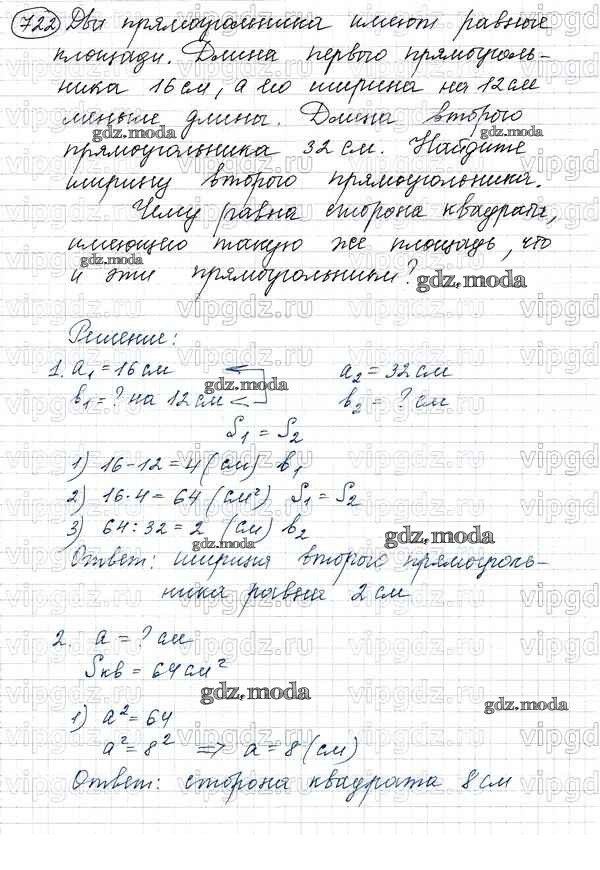 722 Два прямоугольника имеют равные
площади. Длина первого прямоуголь-
ника 16 см, а его ширина на 12 см
меньше длины. Длина второго
gdz.moda gdz.moda
прямоугольника 32 см. Найдите
ширину второго прямоугольника.
Чему равна сторона квадрата,
имеющего такую же площадь, что
gdz.moda
и эти прямоугольники?
gdz.moda
Решение:
1. a₁ = 16 см a₂ = 32 см
gdz.moda
b₁ = ? на 12 см b₂ = ? см
S₁ = S₂
1) 16 - 12 = 4 (см) b₁
2) 16 · 4 = 64 (см²) S₁ = S₂
3) 64 : 32 = 2 (см) b₂
gdz.moda gdz.moda
Ответ: ширина второго прямоуголь-
ника равна 2 см
2. a = ? см
Sкв = 64 см²
gdz.moda gdz.moda
1) a² = 64
a² = 8² => a = 8 (см)
Ответ: сторона квадрата 8 см